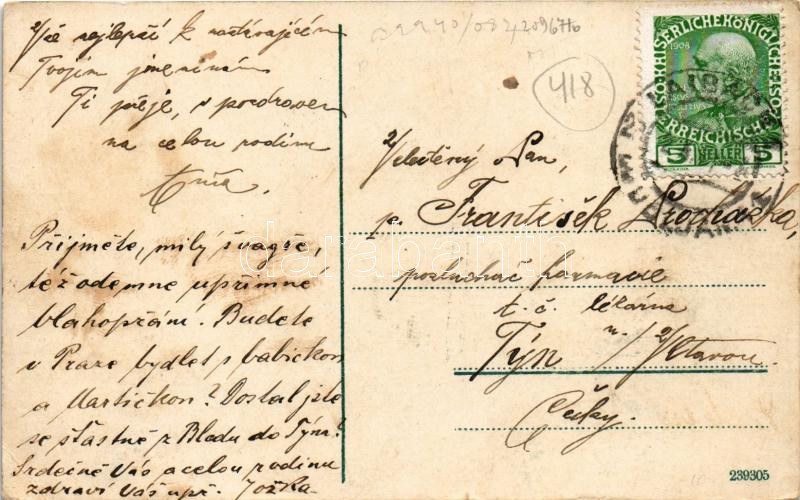 Vše nejlepší k nastávajícím
Tvojim jmeninám
Ti přeje, s pozdravem
na celou rodinu
Přijměte, milý švagře,
též odemne upřímné
blahopřání. Budete
v Praze bydlet s babičkou
a Martičkou? Dostal jste
se šťastně z Bledu do Týna?
Srdečně Vás a celou rodinu
zdraví Váš upř. Jožka
418
1908
5 HELLER 5
LAIBACH
Velectěný Pan,
p. František Procházka,
posluchač farmacie
t. č. lékárna
Týn n./Vltavou.
Čechy.
239305
darabanth